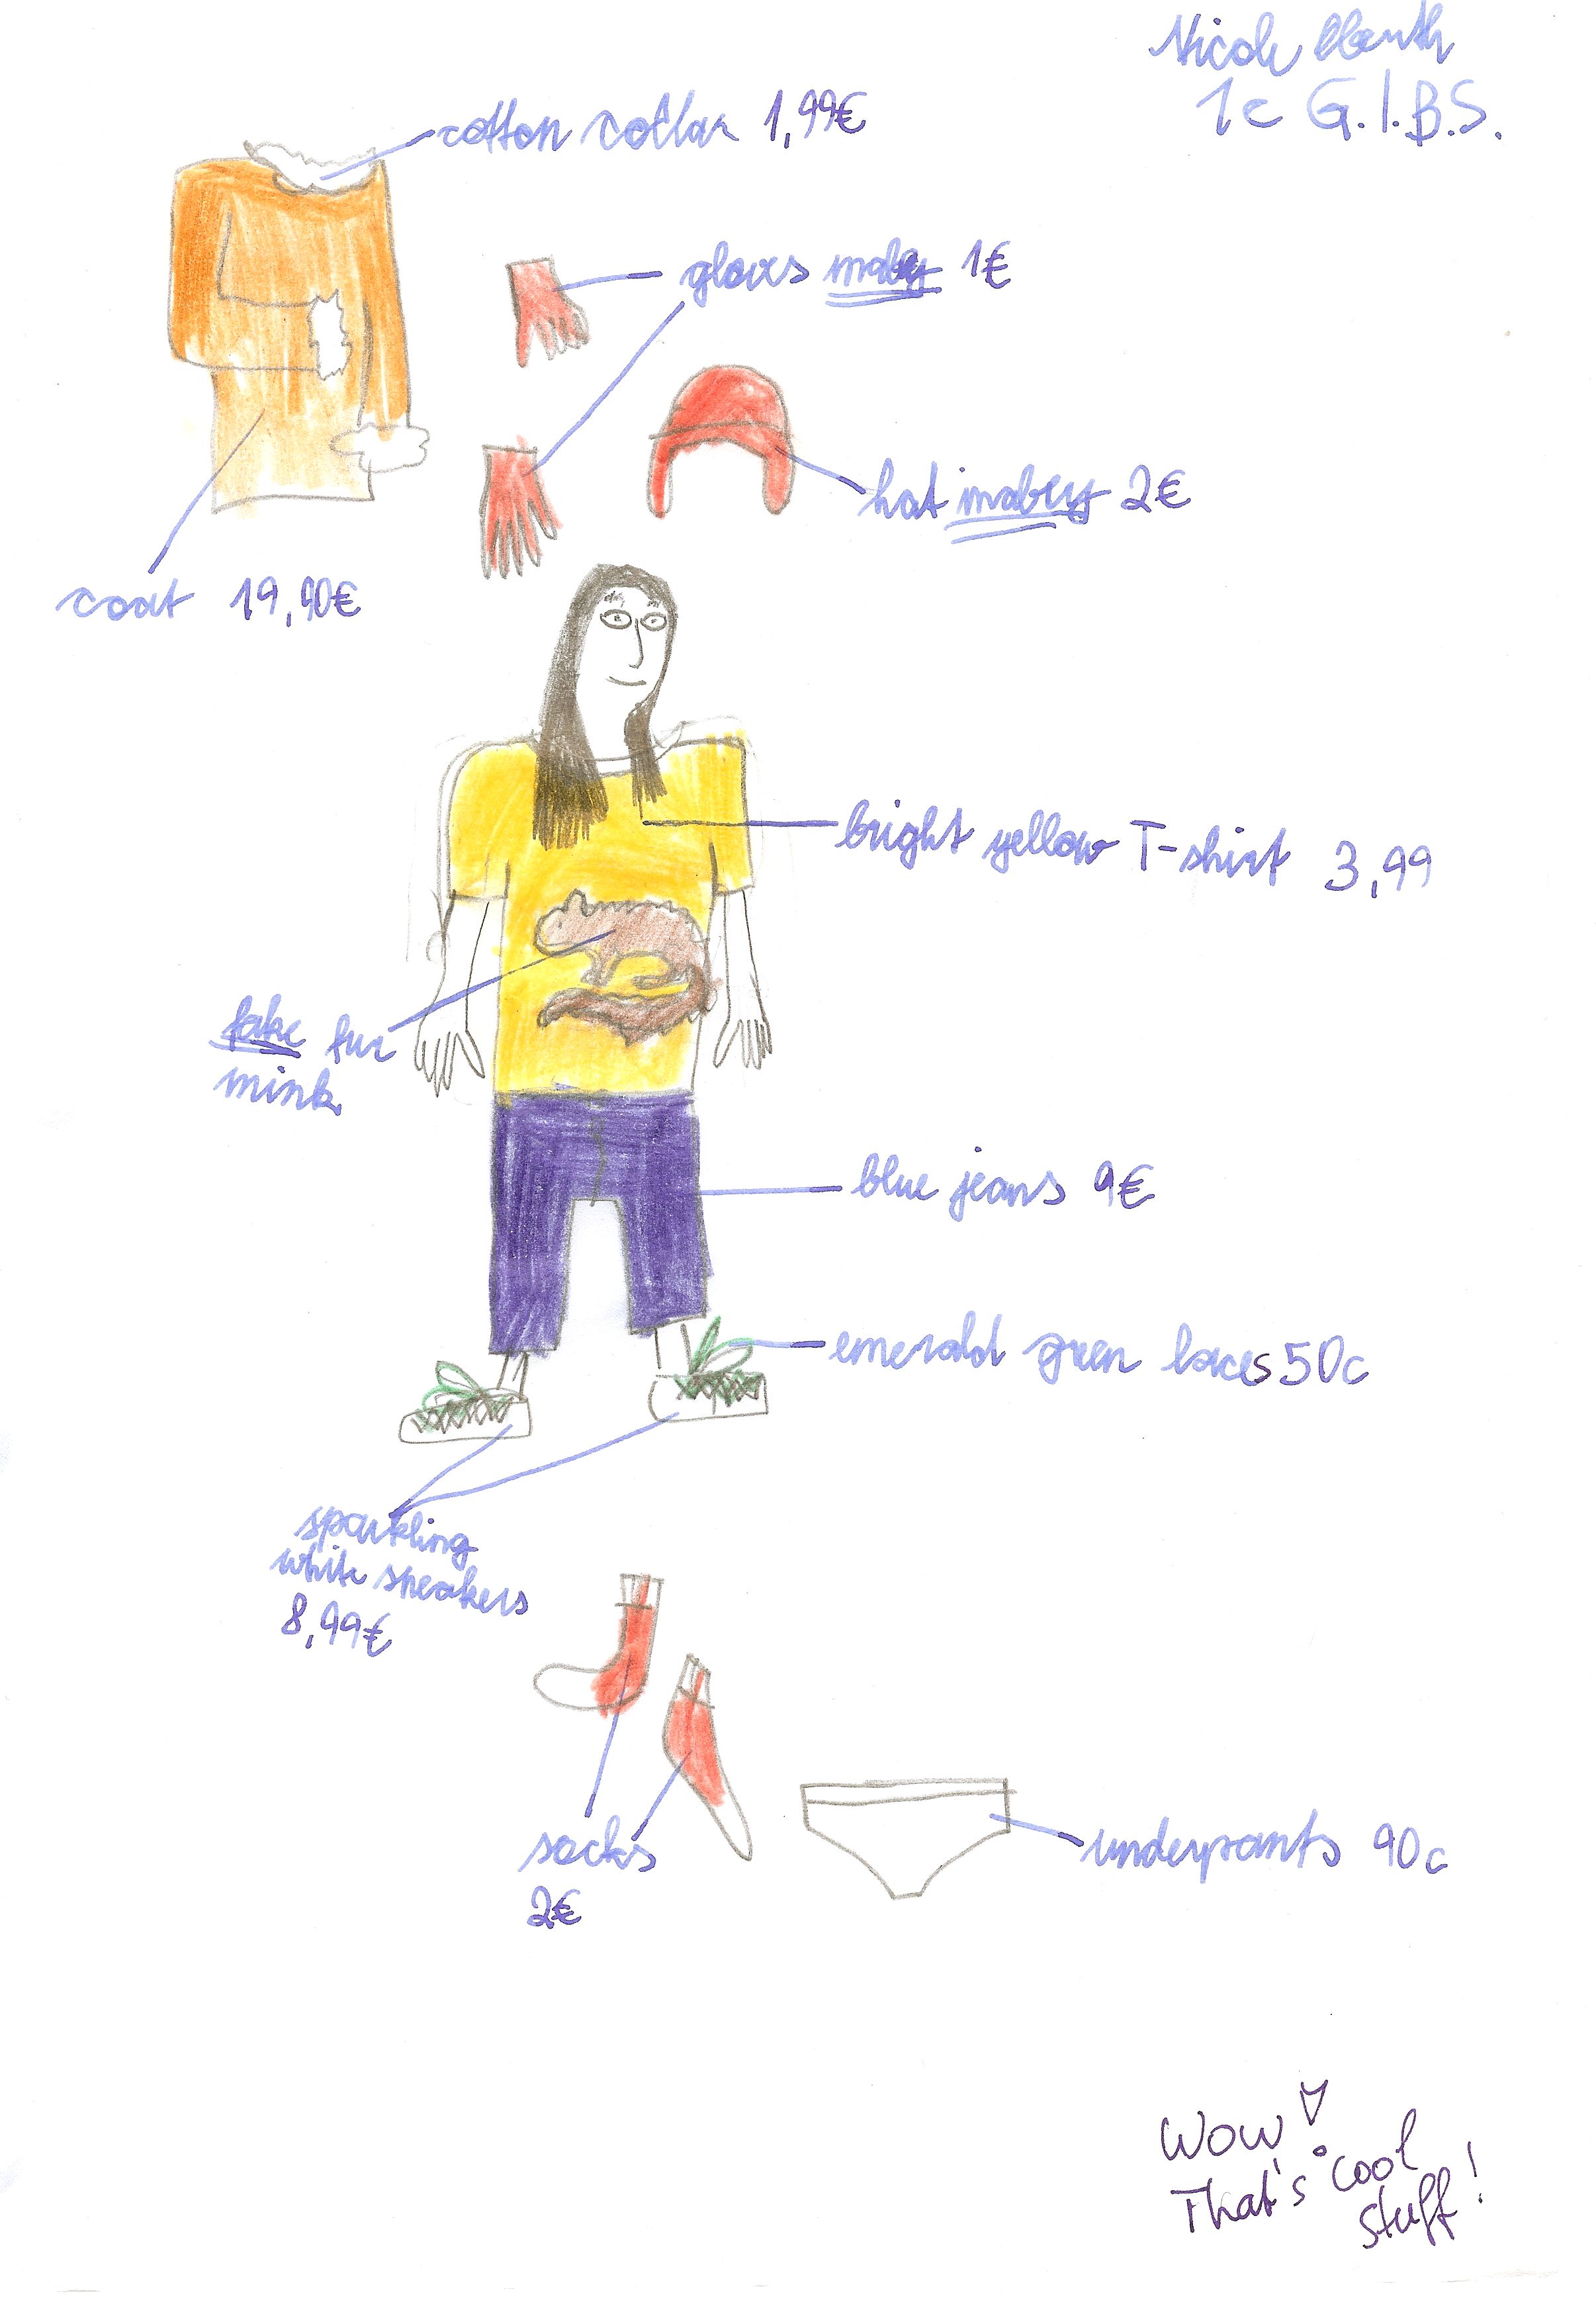 Nicole
1c G.I.B.S.
cotton collar 1,99€
gloves mabey 1€
hat mabey 2€
coat 19,90€
bright yellow T-shirt 3,99
fake fur
mink
blue jeans 9€
emerald green laces 50c
sparkling
white sneakers
8,99€
socks
2€
underpants 90c
Wow!
That's cool
stuff!